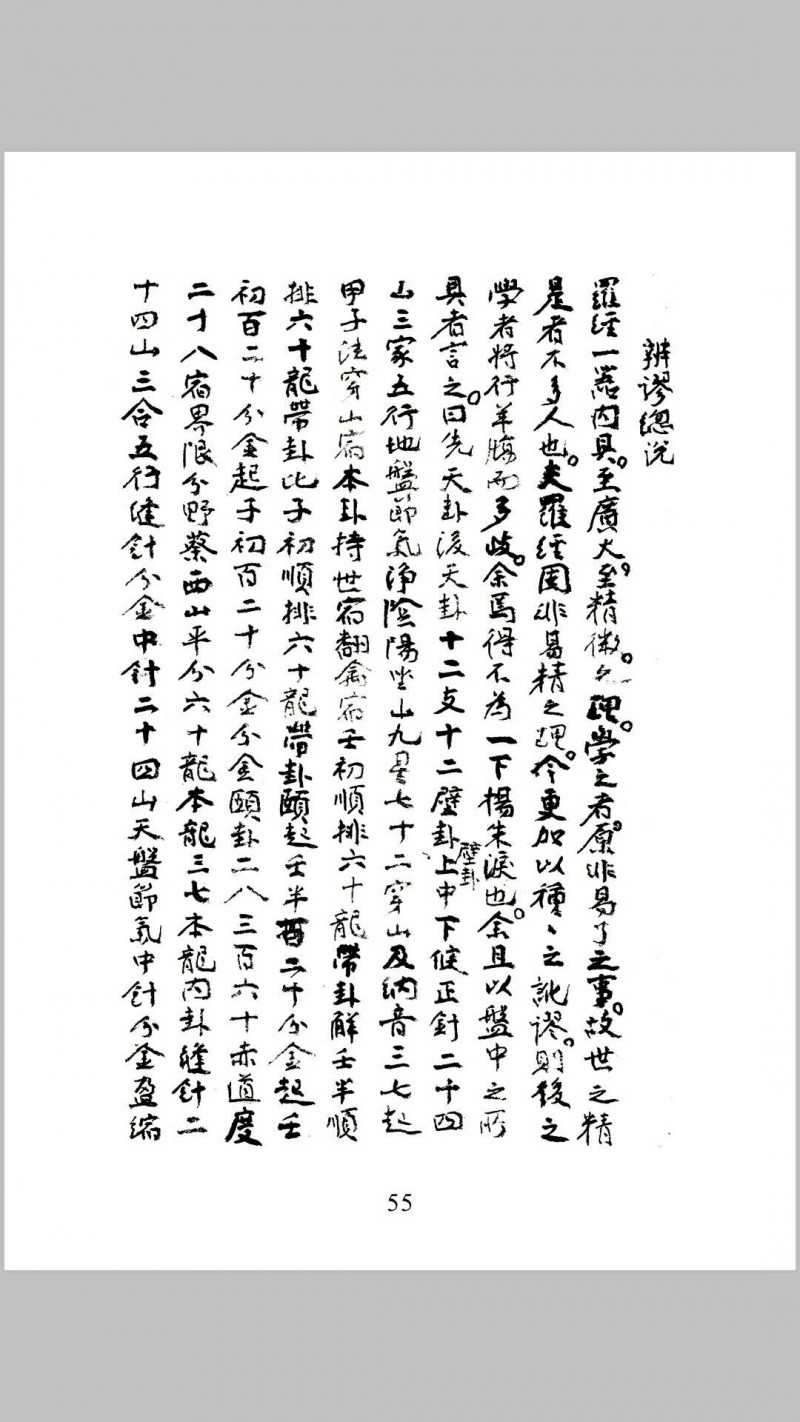 辨謬總說
羅經一器内具。至廣大。至精微。之理。學之者。原非易了之事。故世之精
是者不多人也。夫羅經固非易精之理。今更加以種、之訛謬。則後之
學者將行羊腸而多歧。余焉得不為一下楊朱淚也。余且以盤中之所
具者言之。曰先天卦後天卦十二支十二壁卦上中下候正針二十四
壁卦
山三家五行地盤節氣淨陰陽坐山九星七十二穿山及納音三七起
甲子法穿山宿本卦持世宿翻禽宿壬初順排六十龍帶卦解壬半順
排六十龍帶卦比子初順排六十龍帶卦頤起壬半百二十分金起壬
初百二十分金起子初百二十分金分金頤卦二八三百六十赤道度
二十八宿界限分野蔡西山平分六十龍本龍三七本龍内卦縫針二
十四山三合五行縫針分金中針二十四山天盤節氣中針分金盈縮
55